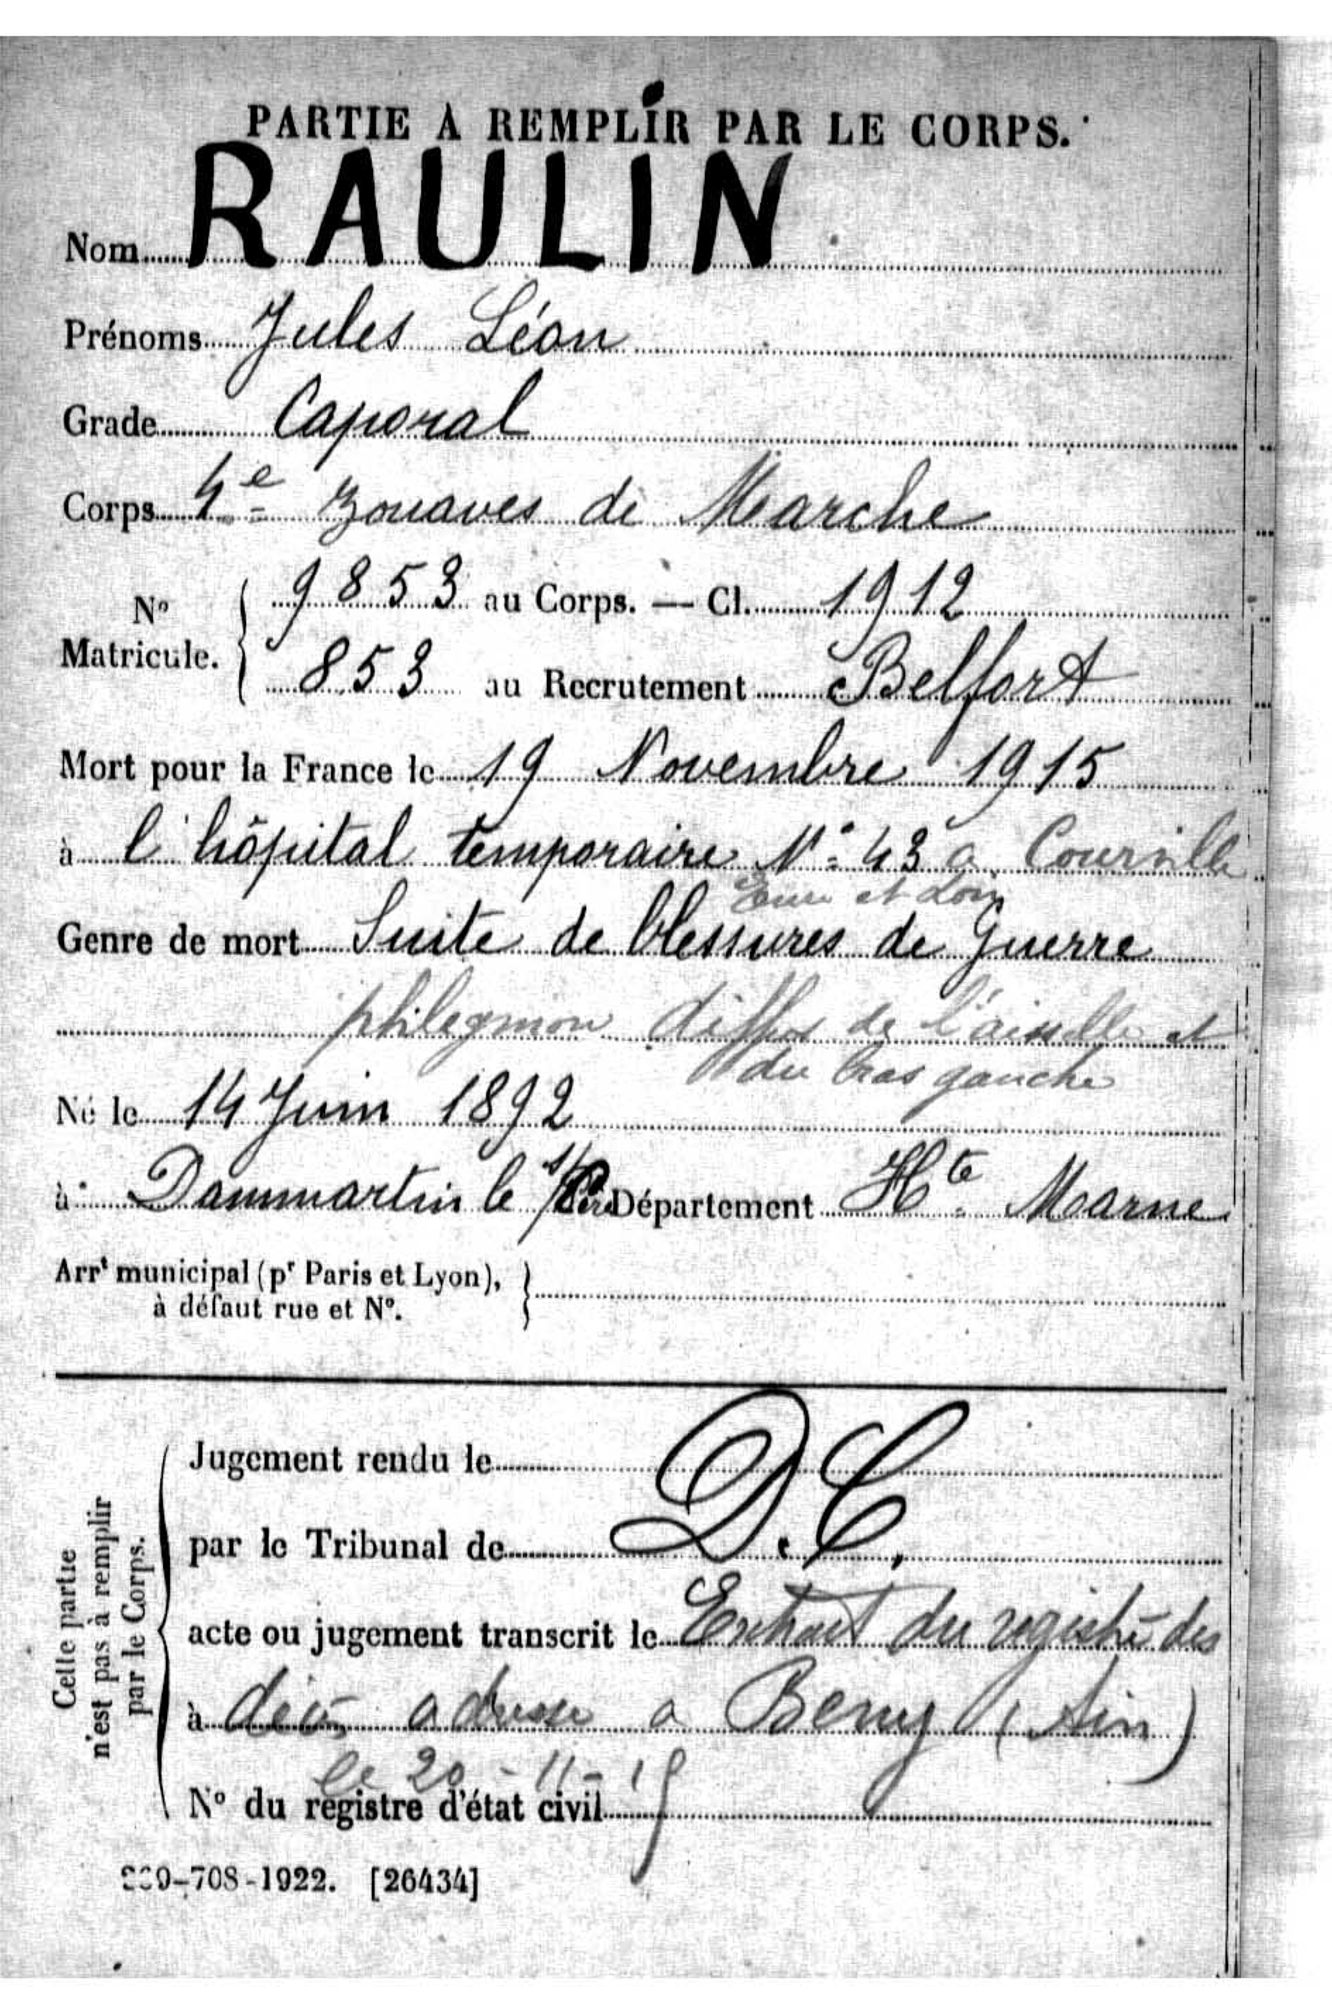 PARTIE À REMPLIR PAR LE CORPS.
Nom RAULIN
Prénoms Jules Léon
Grade Caporal
Corps 4e Zouaves de Marche
No Matricule. 9853 au Corps. — Cl. 1912
853 au Recrutement Belfort
Mort pour la France le 19 Novembre 1915
à l'hôpital temporaire No 43 a Courville
Eure et Loir
Genre de mort Suite de blessures de Guerre
phlegmon diffus de l'aisselle et
du bras gauche
Né le 14 Juin 1892
à Dammartin le St Père Département Hte Marne
Arrt municipal (pr Paris et Lyon),
à défaut rue et No.
Cette partie
n'est pas à remplir
par le Corps.
Jugement rendu le
D.C.
par le Tribunal de
acte ou jugement transcrit le Extrait du registre des
à décès adressé a Beny (Ain)
le 20-11-15
No du registre d'état civil
-708-1922. [26434]